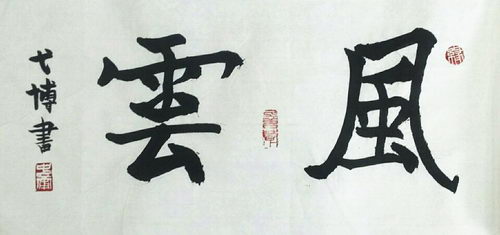 風雲
弋博書